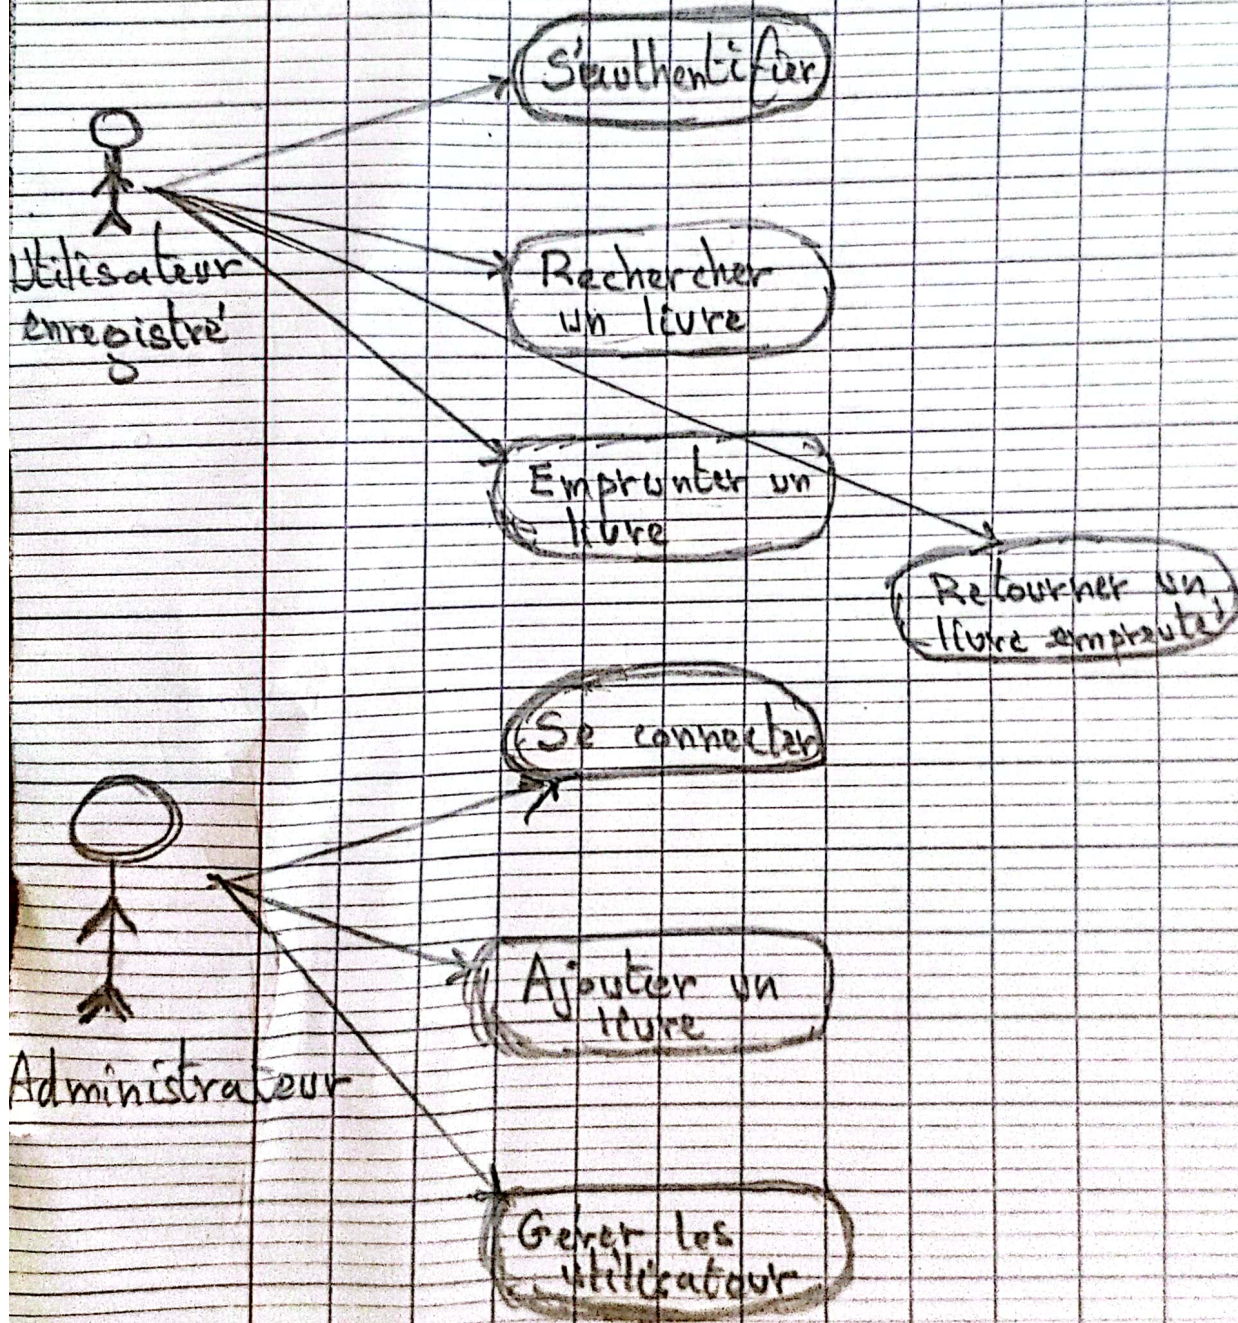 S'authentifier
Utilisateur
enregistré
Rechercher
un livre
Emprunter un
livre
Retourner un
livre emprunté
Se connecter
Ajouter un
livre
Administrateur
Gérer les
utilisateur